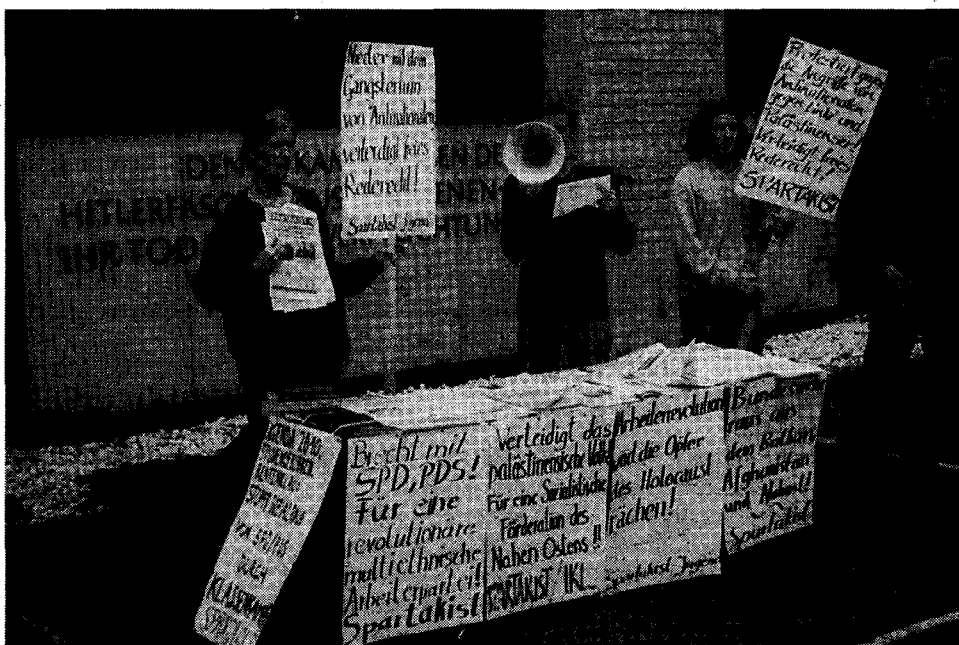 Nieder mit dem
Gangstertum
von "Antinationalen",
verteidigt linkes
Rederecht!
Spartakist Jugend
Protestiert gegen
die Angriffe von
Antinationalen
gegen Linke und
Palästinenser!
Verteidigt linkes
Rederecht!
SPARTAKIST
DEN KÄM
HITLERFASC
IHR TOD
Brecht mit
SPD, PDS!
Für eine
revolutionäre
multiethnische
Arbeiterpartei!
Spartakist
Verteidigt das
palästinensische Volk
Für eine Sozialistische
Föderation des
Nahen Ostens!!
SPARTAKIST/IKL
Arbeiterrevolution
wird die Opfer
des Holocaust
rächen!
Spartakist Jugend
Bundeswehr
raus aus
dem Balkan,
Afghanistan
und Nahost!!
Spartakist
VON SPD/PDS
DURCH
KLASSENKAMPF